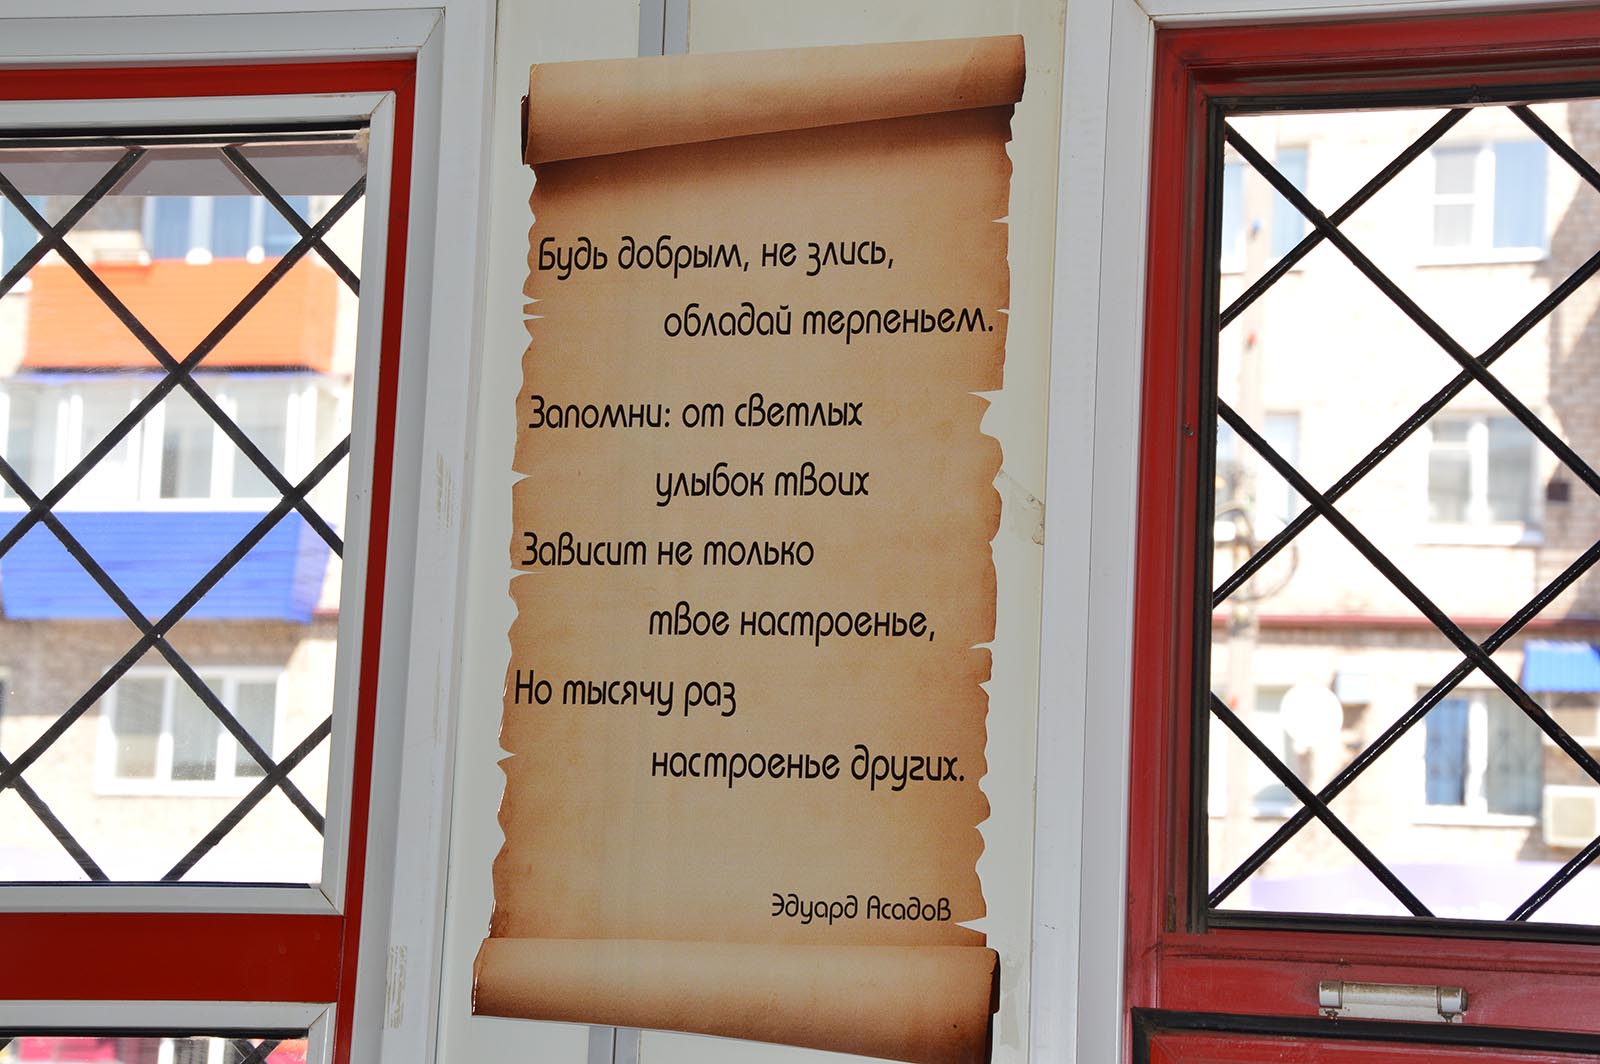 Будь добрым, не злись,
обладай терпеньем.
Запомни: от светлых
улыбок твоих
Зависит не только
твое настроенье,
Но тысячу раз
настроенье других.
Эдуард Асадов